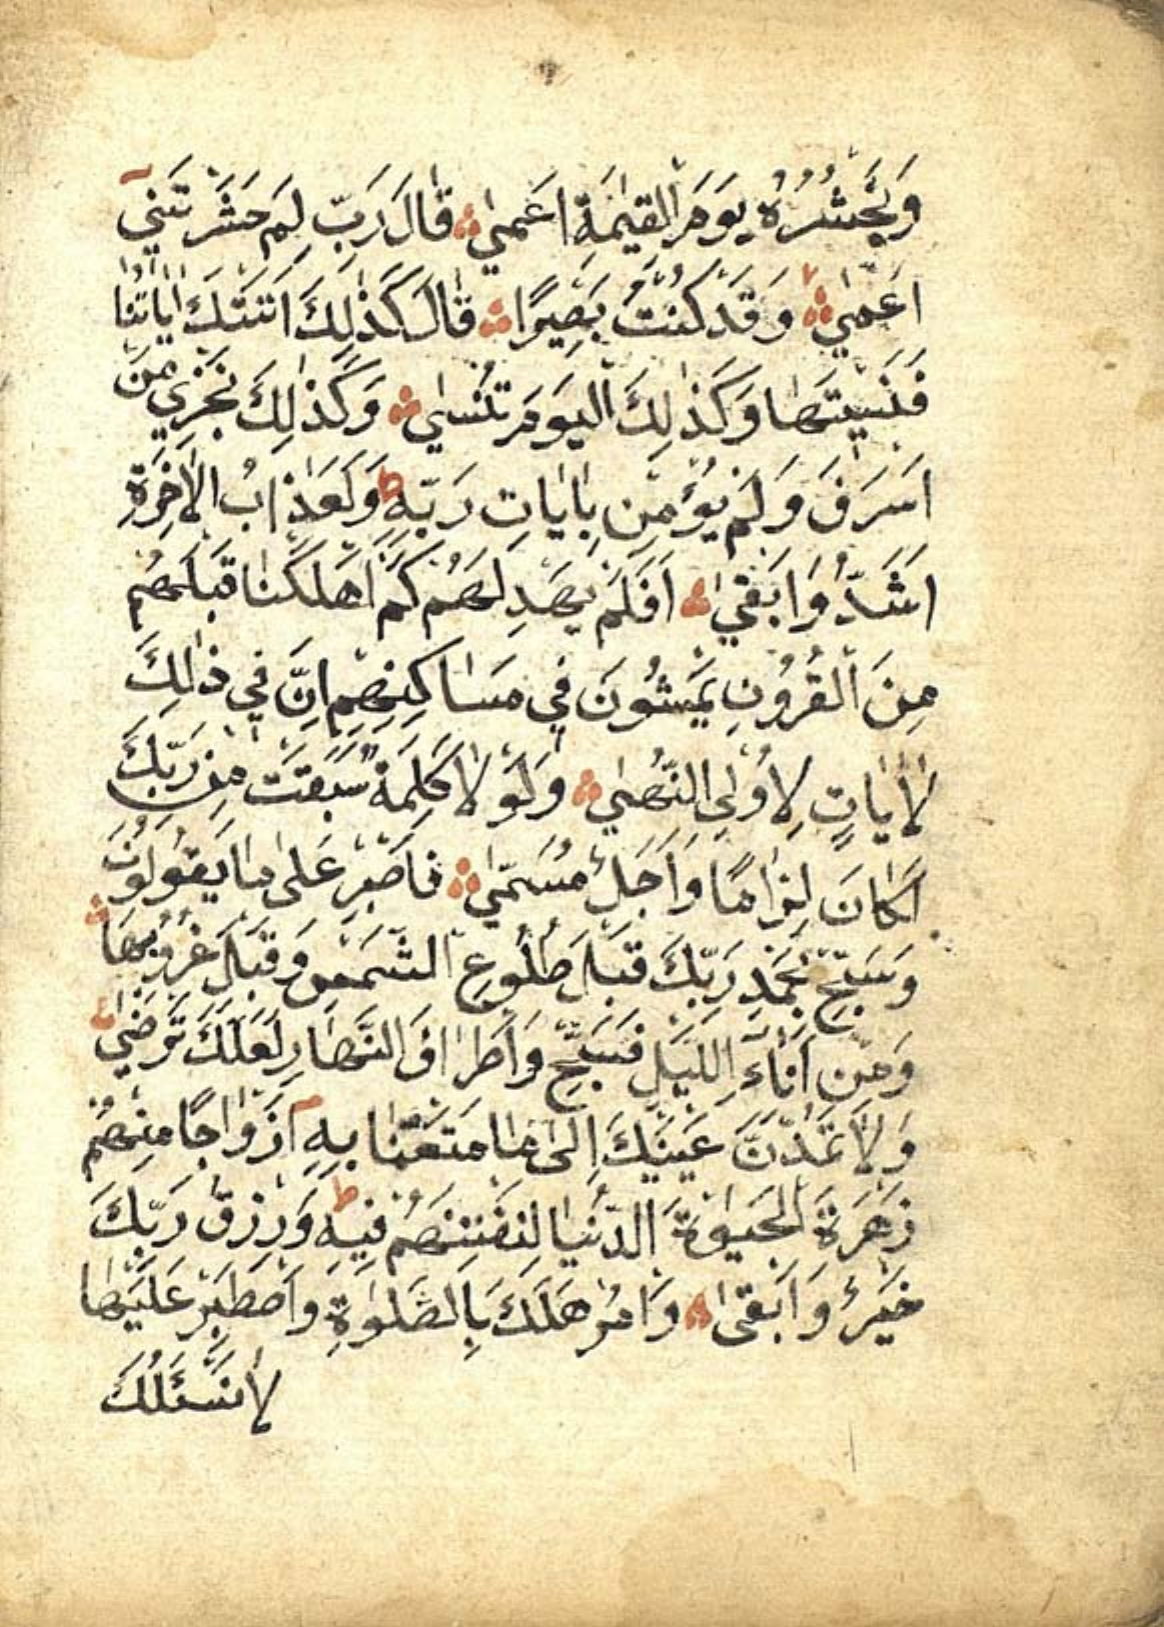 وَنَحْشُرُهُ يَوْمَ الْقِيٰمَةِ اَعْمٰى قَالَ رَبِّ لِمَ حَشَرْتَنِي
اَعْمٰى وَقَدْ كُنْتُ بَصِيرًا قَالَ كَذٰلِكَ اَتَتْكَ اٰيَاتُنَا
فَنَسِيتَهَا وَكَذٰلِكَ الْيَوْمَ تُنْسٰى وَكَذٰلِكَ نَجْزِي مَنْ
اَسْرَفَ وَلَمْ يُؤْمِنْ بِاٰيَاتِ رَبِّهِ ط وَلَعَذَابُ الْاٰخِرَةِ
اَشَدُّ وَاَبْقٰى اَفَلَمْ يَهْدِ لَهُمْ كَمْ اَهْلَكْنَا قَبْلَهُمْ
مِنَ الْقُرُونِ يَمْشُونَ فِي مَسَاكِنِهِمْ اِنَّ فِي ذٰلِكَ
لَاٰيَاتٍ لِاُولِي النُّهٰى وَلَوْلَا كَلِمَةٌ سَبَقَتْ مِنْ رَبِّكَ
لَكَانَ لِزَامًا وَاَجَلٌ مُسَمًّى فَاصْبِرْ عَلٰى مَا يَقُولُونَ
وَسَبِّحْ بِحَمْدِ رَبِّكَ قَبْلَ طُلُوعِ الشَّمْسِ وَقَبْلَ غُرُوبِهَا
وَمِنْ اٰنَآءِ اللَّيْلِ فَسَبِّحْ وَاَطْرَافَ النَّهَارِ لَعَلَّكَ تَرْضٰى
وَلَا تَمُدَّنَّ عَيْنَيْكَ اِلٰى مَا مَتَّعْنَا بِهِ اَزْوَاجًا مِنْهُمْ
زَهْرَةَ الْحَيٰوةِ الدُّنْيَا لِنَفْتِنَهُمْ فِيهِ ط وَرِزْقُ رَبِّكَ
خَيْرٌ وَاَبْقٰى وَاْمُرْ هَلَكَ بِالصَّلٰوةِ وَاصْطَبِرْ عَلَيْهَا
لَا نَسْئَلُكَ